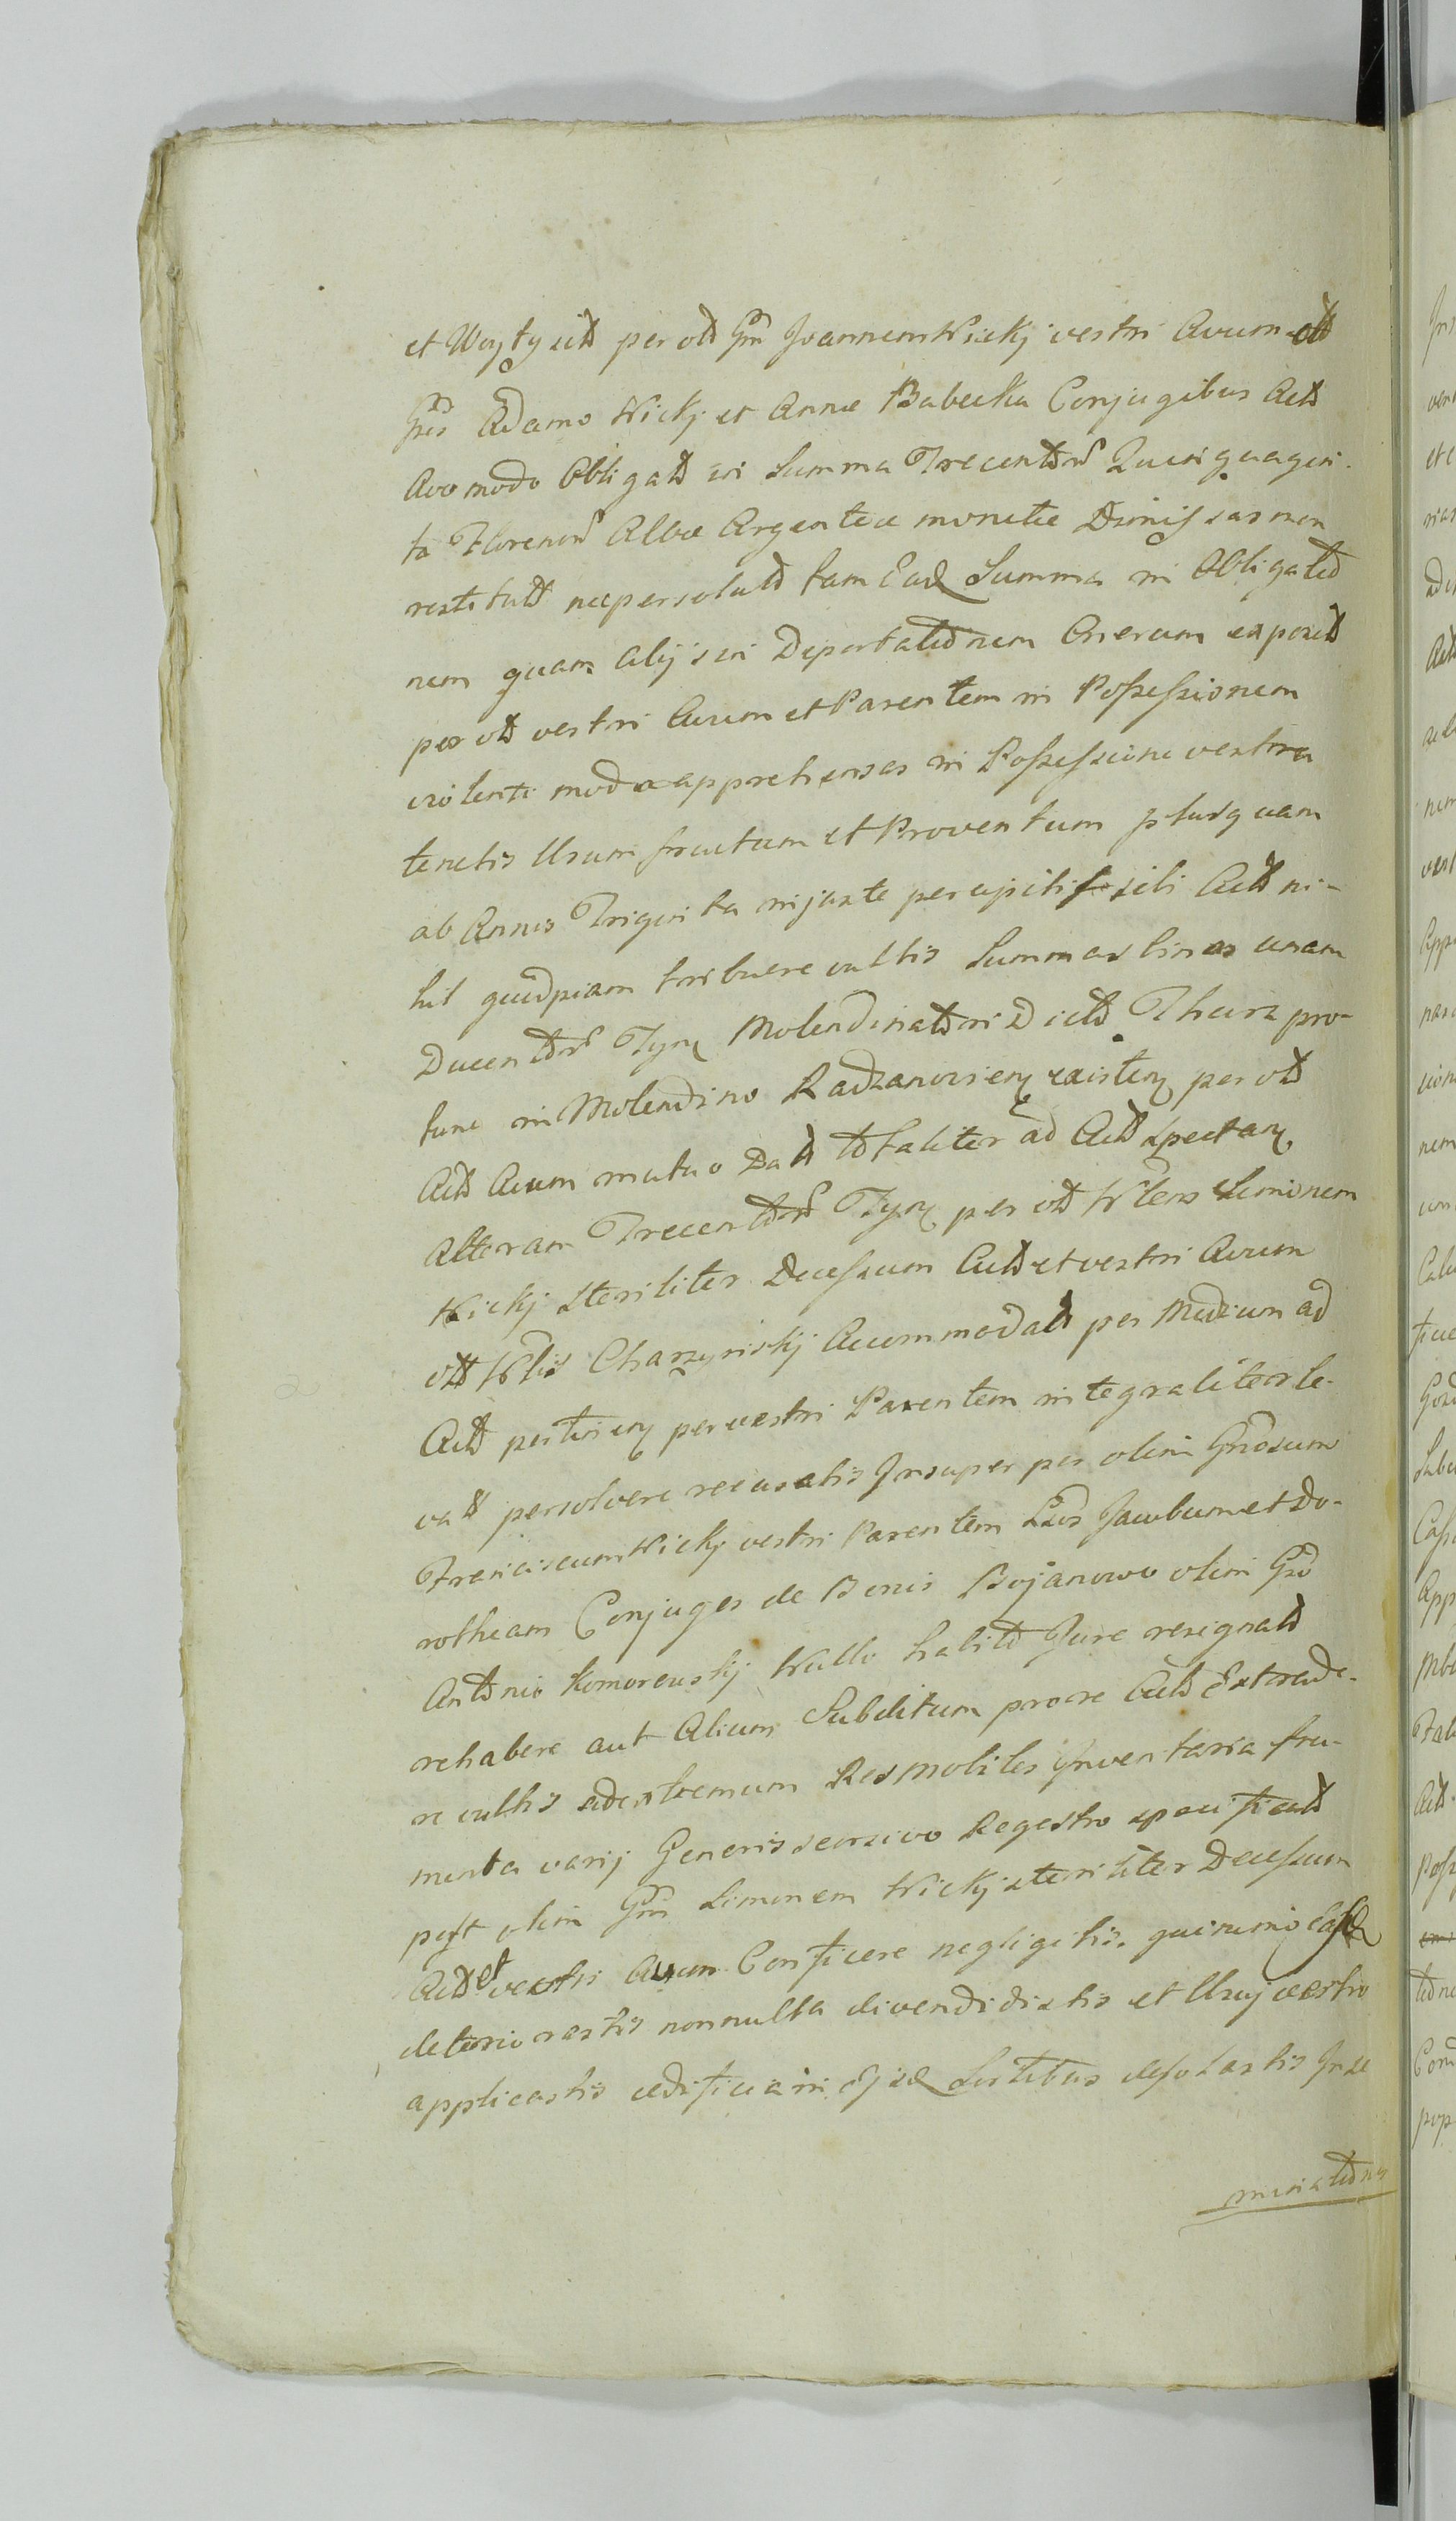 et per olt Gm Joannem Wickj vestri Avum olt
Gsis Adamo Wickj et Annæ Babecka Conjugibus Act
Avo modo Obligatt in Summa Trecentor Quinquagin-
ta Florenor Albæ Argenteæ monetæ Dimissas non
restitutt nec persolutt tam Ead Summa in Obligatio
nem quam alijs in Deportationem Onerum exposit
per olt vestri Avum et Parentem in Possessionem
violento modo apprehensas in Possessione vestra
tenetis Usum fructum et Proventum plusquam
ab Annis Triginta injuste percipitis sibi Act ni-
hil quidpiam tribuere vultis Summas binas unam
Ducentor Tynf Molendinatori Dicto Thurz pro-
tunc in Molendino Radzanovien existen per olt
Act Avum mutuo Datt totaliter ad Act spectan
Alteram Trecentor Tynf per olt Simonem
Wickj steriliter Decessum Act et vestri Avum
olt Charzynskj Accommodatt per Medium ad
Act pertinen per vestri Parentem integraliter le-
vatt persolvere recusatis Insuper per olim Gnosum
Franciscum Wickj vestri Parentem Jacobum et Do-
rotheam Conjuges de Bonis Bojanowo olim Gso
Antonio Komorowskj Nullo habito Jure resignatt
rehabere aut Alium Subditum pro re Act Extrade-
re vultis ad extremum Res mobiles Inventaria fru-
menta varij Generis seorsivo Regestro specificatt
post olim Gm Simonem Wickj steriliter Decessum
Act et vestri Avum Conficere negligitis. quinimo Easd
deteriorastis nonnulla divendidistis et Usuj vestro
applicastis ædificia in Ejsd Sortibus desolastis Inse
minationes